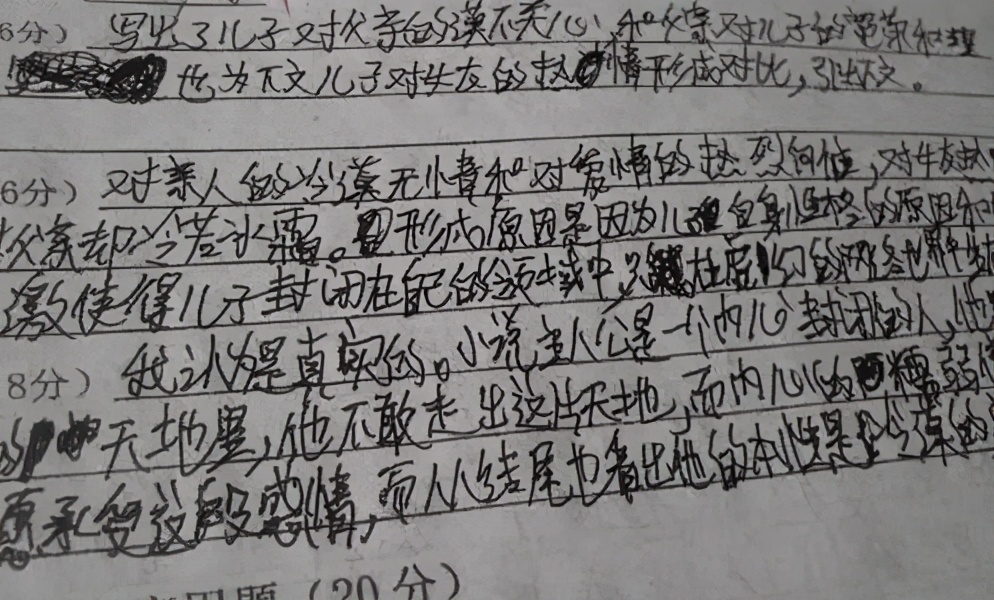 6分）写出了儿子对父亲的漠不关心，和父亲对儿子的宽容和理
也为下文儿子对女友的热情形成对比，引出下文。
6分）对亲人的冷漠无情和对爱情的热烈向往，对女友热
父亲却冷若冰霜。形成原因是因为儿自身性格的原因和
激使得儿子封闭在自己的领域中，在虚幻的网络世界中
8分）我认为是真实的。小说主人公是一个内心封闭的人，他
的天地里，他不敢走出这片天地，而内心的懦弱
承受这段感情，而从结尾也看出他的本性是冷漠的
用题（20分）